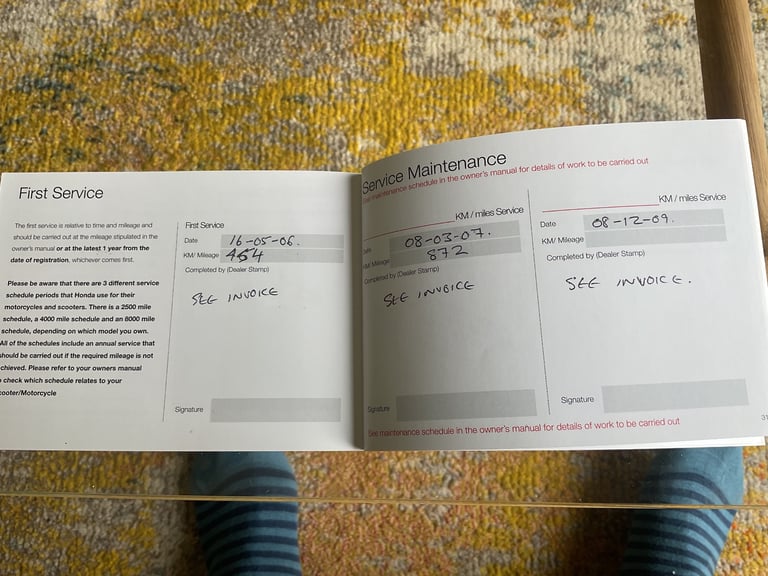 First Service
The first service is relative to time and mileage and
should be carried out at the mileage stipulated in the
owner's manual or at the latest 1 year from the
date of registration, whichever comes first.
Please be aware that there are 3 different service
schedule periods that Honda use for their
motorcycles and scooters. There is a 2500 mile
schedule, a 4000 mile schedule and an 8000 mile
schedule, depending on which model you own.
All of the schedules include an annual service that
should be carried out if the required mileage is not
chieved. Please refer to your owners manual
check which schedule relates to your
cooter/Motorcycle
First Service
Date 16-05-06.
KM/ Mileage 454
Completed by (Dealer Stamp)
SEE INVOICE
Signature
Service Maintenance
maintenance schedule in the owner's manual for details of work to be carried out
KM / miles Service
Date 08-03-07.
KM/ Mileage 872
Completed by (Dealer Stamp)
SEE INVOICE
Signature
KM / miles Service
Date 08-12-09.
KM/ Mileage
Completed by (Dealer Stamp)
SEE INVOICE.
Signature
See maintenance schedule in the owner's manual for details of work to be carried out
31